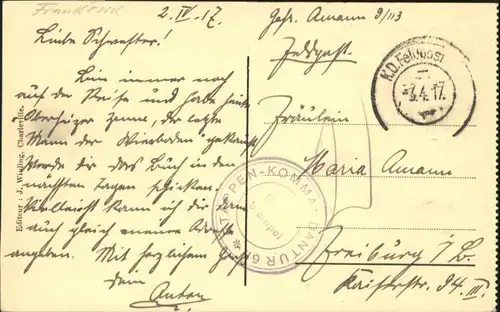 Frankreich
2. IV. 17.
Liebe Schwester!
Bin immer noch
auf der Reise und habe heute
der letzte
Mann der Wiesbaden" gekauft
Werde dir das Buch in den
nächsten Tagen schicken.
Vielleicht kann ich dir dann
auch gleich meine Adresse
angeben. Mit herzlichem Gruß
dein
Anton
Gefr. Amann 9/113
Feldpost.
Fräulein
Maria Amann
Freiburg i/B.
Kaiserstr. 94. III.
K.D. Feldpost
3.4.17.
ETAPPEN-KOMMANDANTUR
Editeur: J. Winling, Charleville.